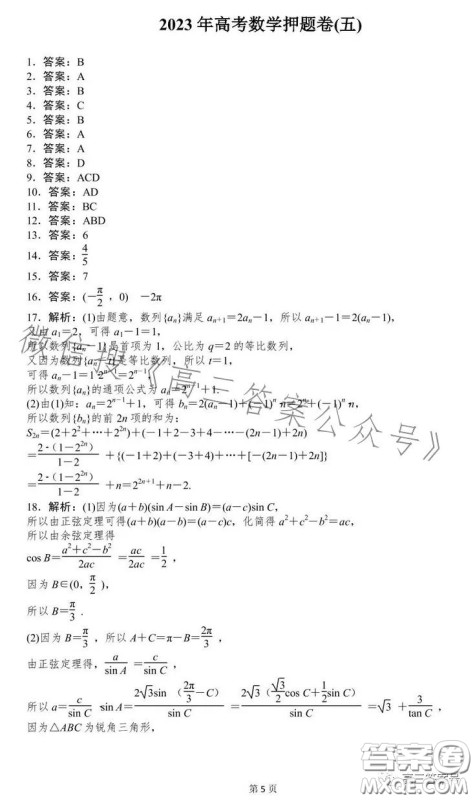 2023 年高考数学押题卷(五)
1. 答案：B
2. 答案：A
3. 答案：B
4. 答案：C
5. 答案：B
6. 答案：A
7. 答案：A
8. 答案：D
9. 答案：ACD
10. 答案：AD
11. 答案：BC
12. 答案：ABD
13. 答案：6
14. 答案：4/5
15. 答案：7
16. 答案：(−π/2，0) −2π
17. 解析：(1)由题意，数列{aₙ}满足 aₙ₊₁=2aₙ−1，所以 aₙ₊₁−1=2(aₙ−1)，
又由 a₁=2，可得 a₁−1=1，
所以数列{aₙ−1}是首项为 1，公比为 q=2 的等比数列，
又因为数列{aₙ−t}是等比数列，所以 t=1，
可得 aₙ−1=1·2ⁿ⁻¹=2ⁿ⁻¹，
所以数列{aₙ}的通项公式为 aₙ=2ⁿ⁻¹+1.
(2)由(1)知：aₙ=2ⁿ⁻¹+1，可得 bₙ=2(aₙ−1)+(−1)ⁿ·n=2ⁿ+(−1)ⁿ·n，
所以数列{bₙ}的前 2n 项的和为：
S₂ₙ=(2+2²+…+2²ⁿ)+(−1+2−3+4−…−(2n−1)+2n)
=2·(1−2²ⁿ)/(1−2) +{(−1+2)+(−3+4)+…+[−(2n−1)+2n]}
=2·(1−2²ⁿ)/(1−2) +n=2²ⁿ⁺¹+n−2.
18. 解析：(1)因为(a+b)(sin A−sin B)=(a−c)sin C，
所以由正弦定理可得(a+b)(a−b)=(a−c)c，化简得 a²+c²−b²=ac，
所以由余弦定理得
cos B=(a²+c²−b²)/2ac =ac/2ac=1/2，
因为 B∈(0，π/2)，
所以 B=π/3 .
(2)因为 B=π/3，所以 A+C=π−B=2π/3，
由正弦定理得，a/sin A =c/sin C，
所以 a=c/sin C ·sin A=2√3sin（2π/3−C）/sin C =2√3(√3/2cos C+1/2sin C)/sin C =√3 +3/tan C，
因为△ABC 为锐角三角形，
第 5 页
微信搜《高三答案公众号》
答案圈
MXQE.COM
高三答案号